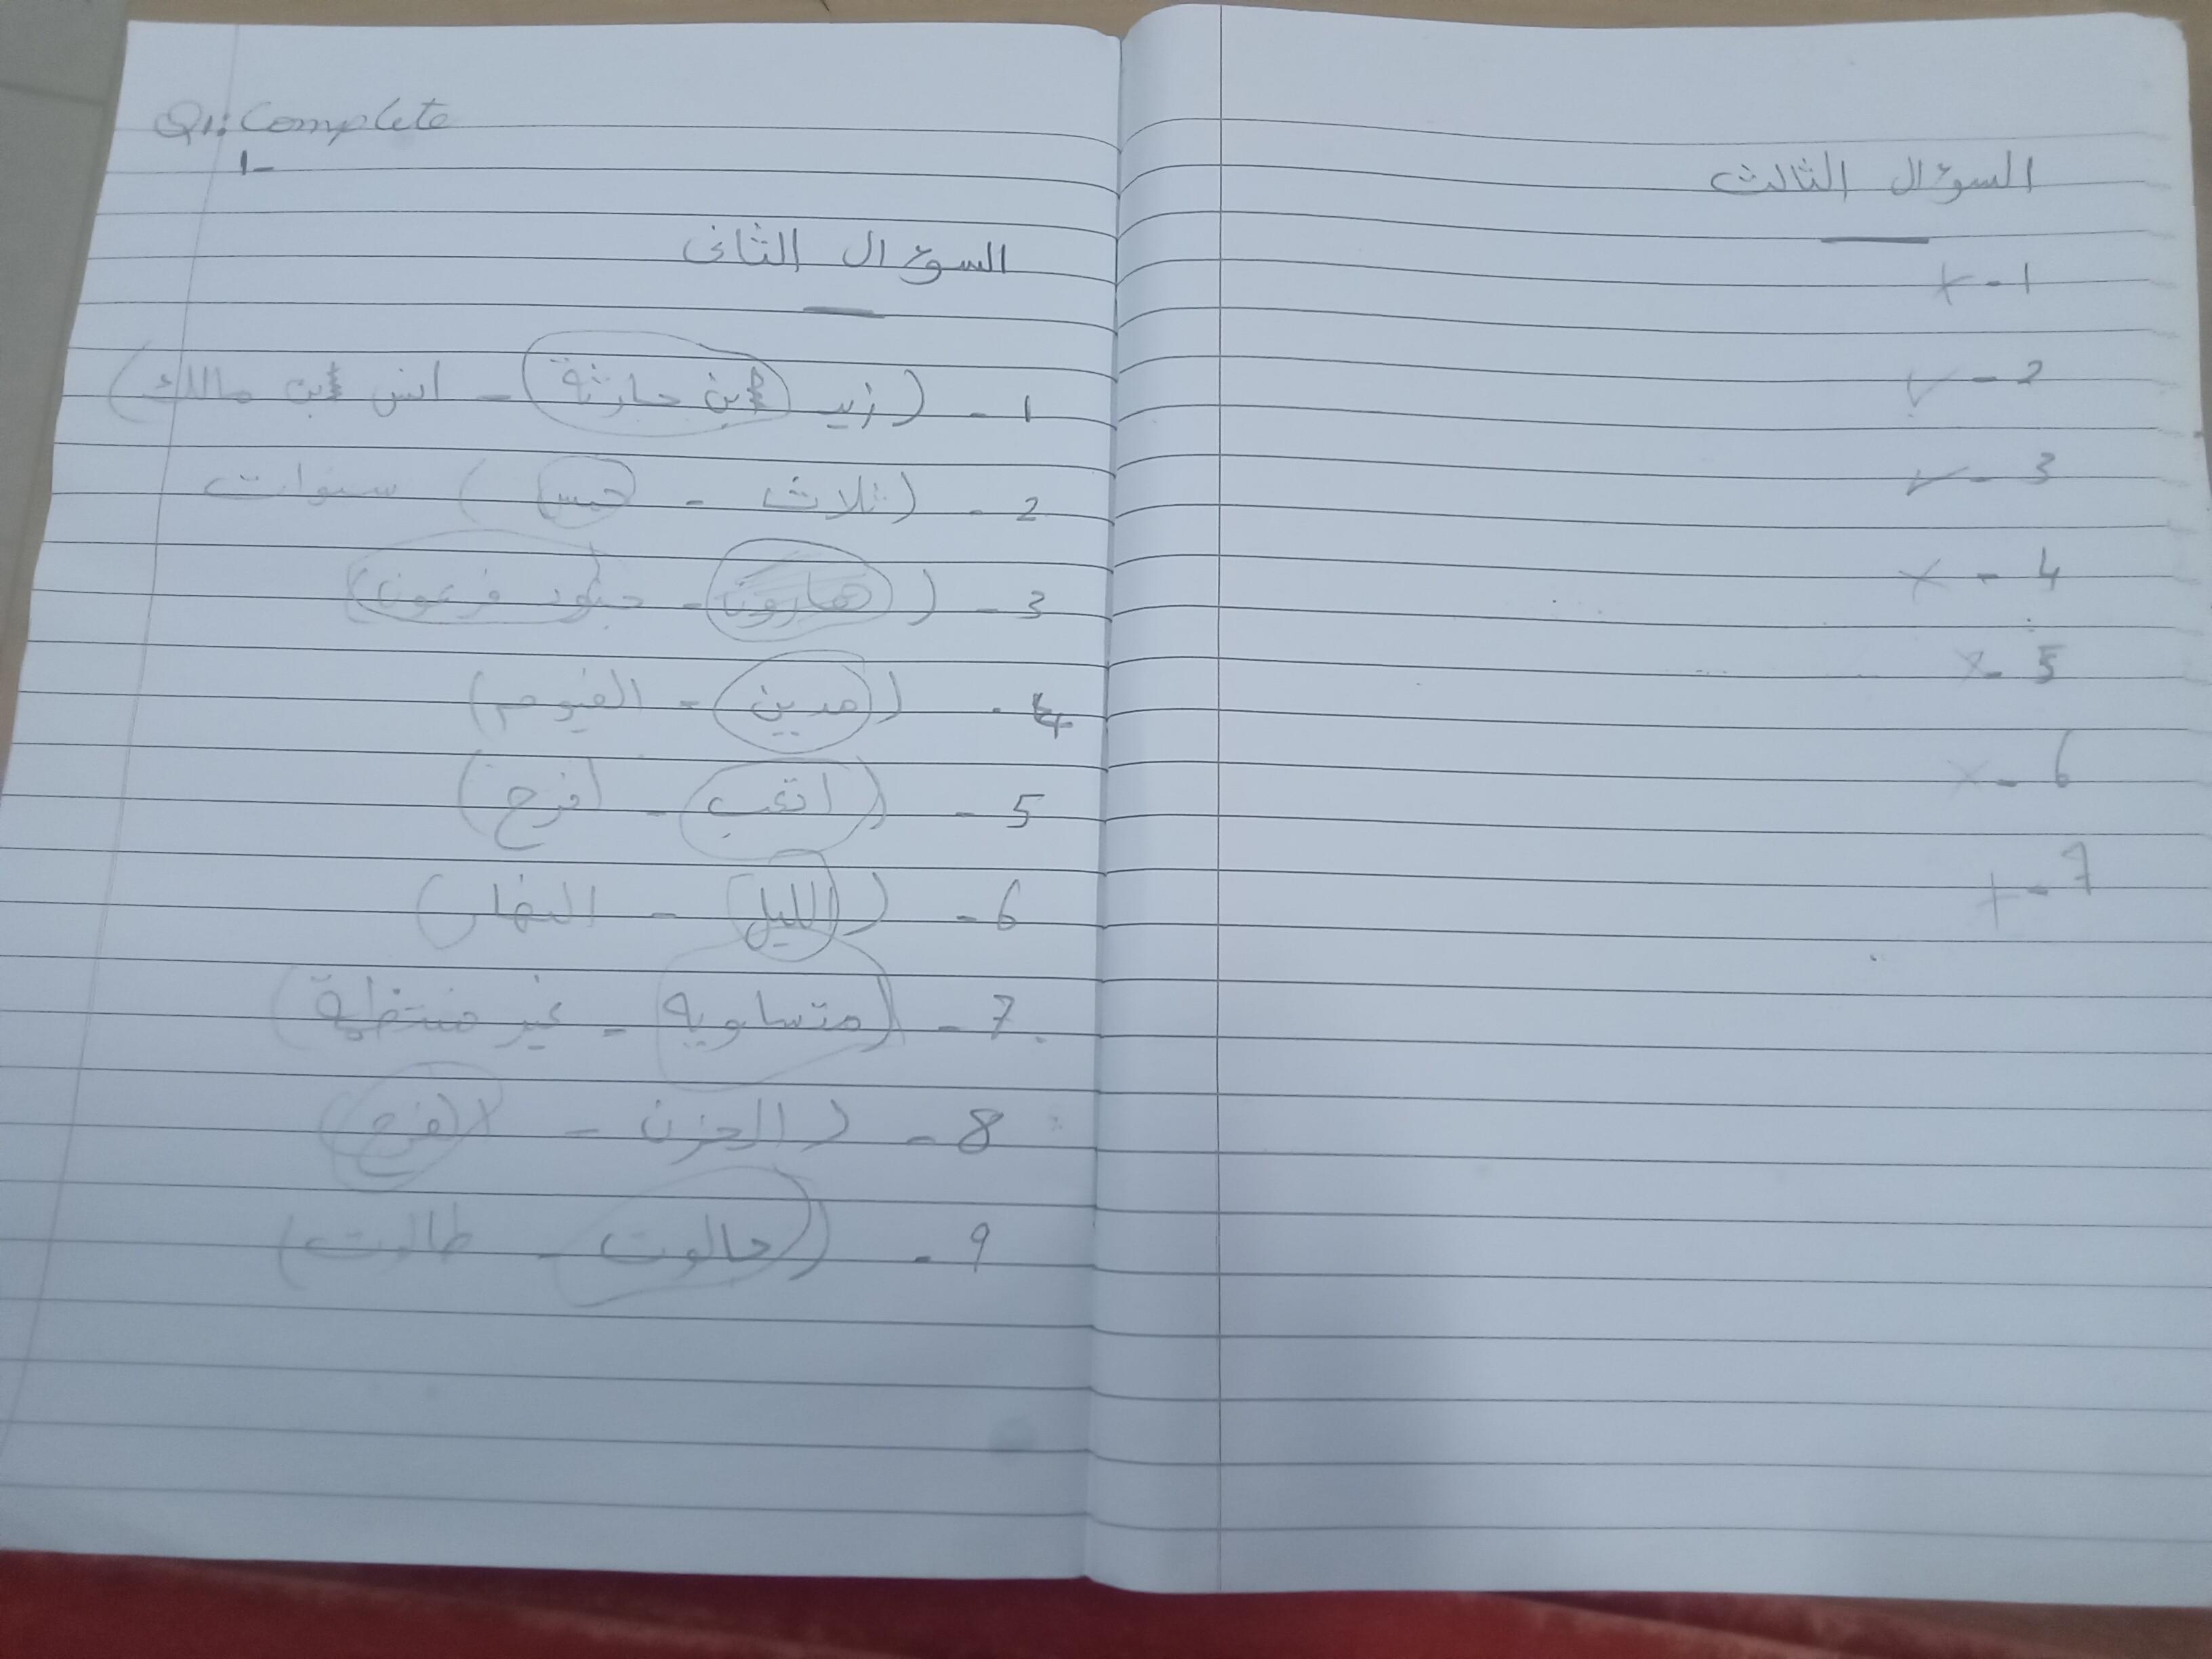 Q1: Complete
1-
السؤال الثانى
1 - (زيد ابن حارثة - انس ابن مالك)
2 - (ثلاث - خمس) سنوات
3 - (هارون - جنود فرعون)
4 - (مدين - الفيوم)
5 - (اتعب - افرح)
6 - (الليل - النهار)
7 - (متساويه - غير منتظمة)
8 - (الحزن - الفرح)
9 - (جالوت - طالوت)
السؤال الثالث
1 - ×
2 - ✓
3 - ✓
4 - ×
5 - ×
6 - ×
7 - ×